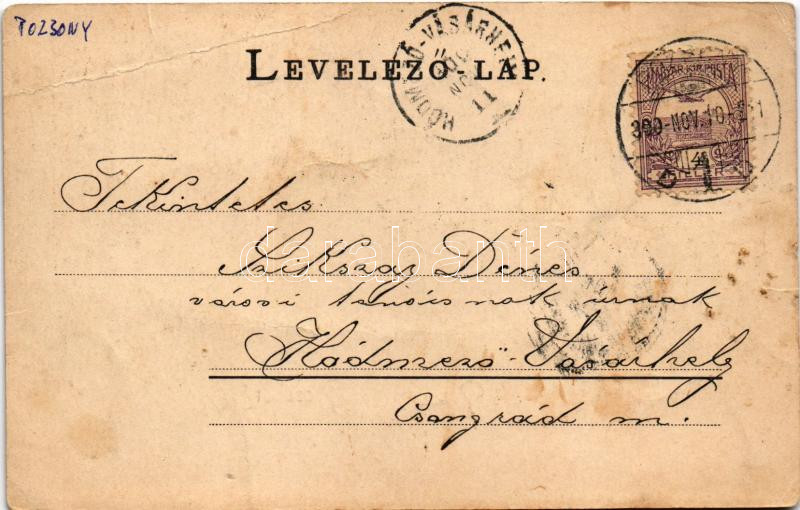 POZSONY
LEVELEZŐ-LAP.
HÓDMEZŐ-VÁSÁRHELY
11
MAGYAR KIR. POSTA
900-NOV.10
Tekintetes
Szikszay Dénes
városi tanácsnok úrnak
Hódmező-Vásárhely
Csongrád m.
darabanth